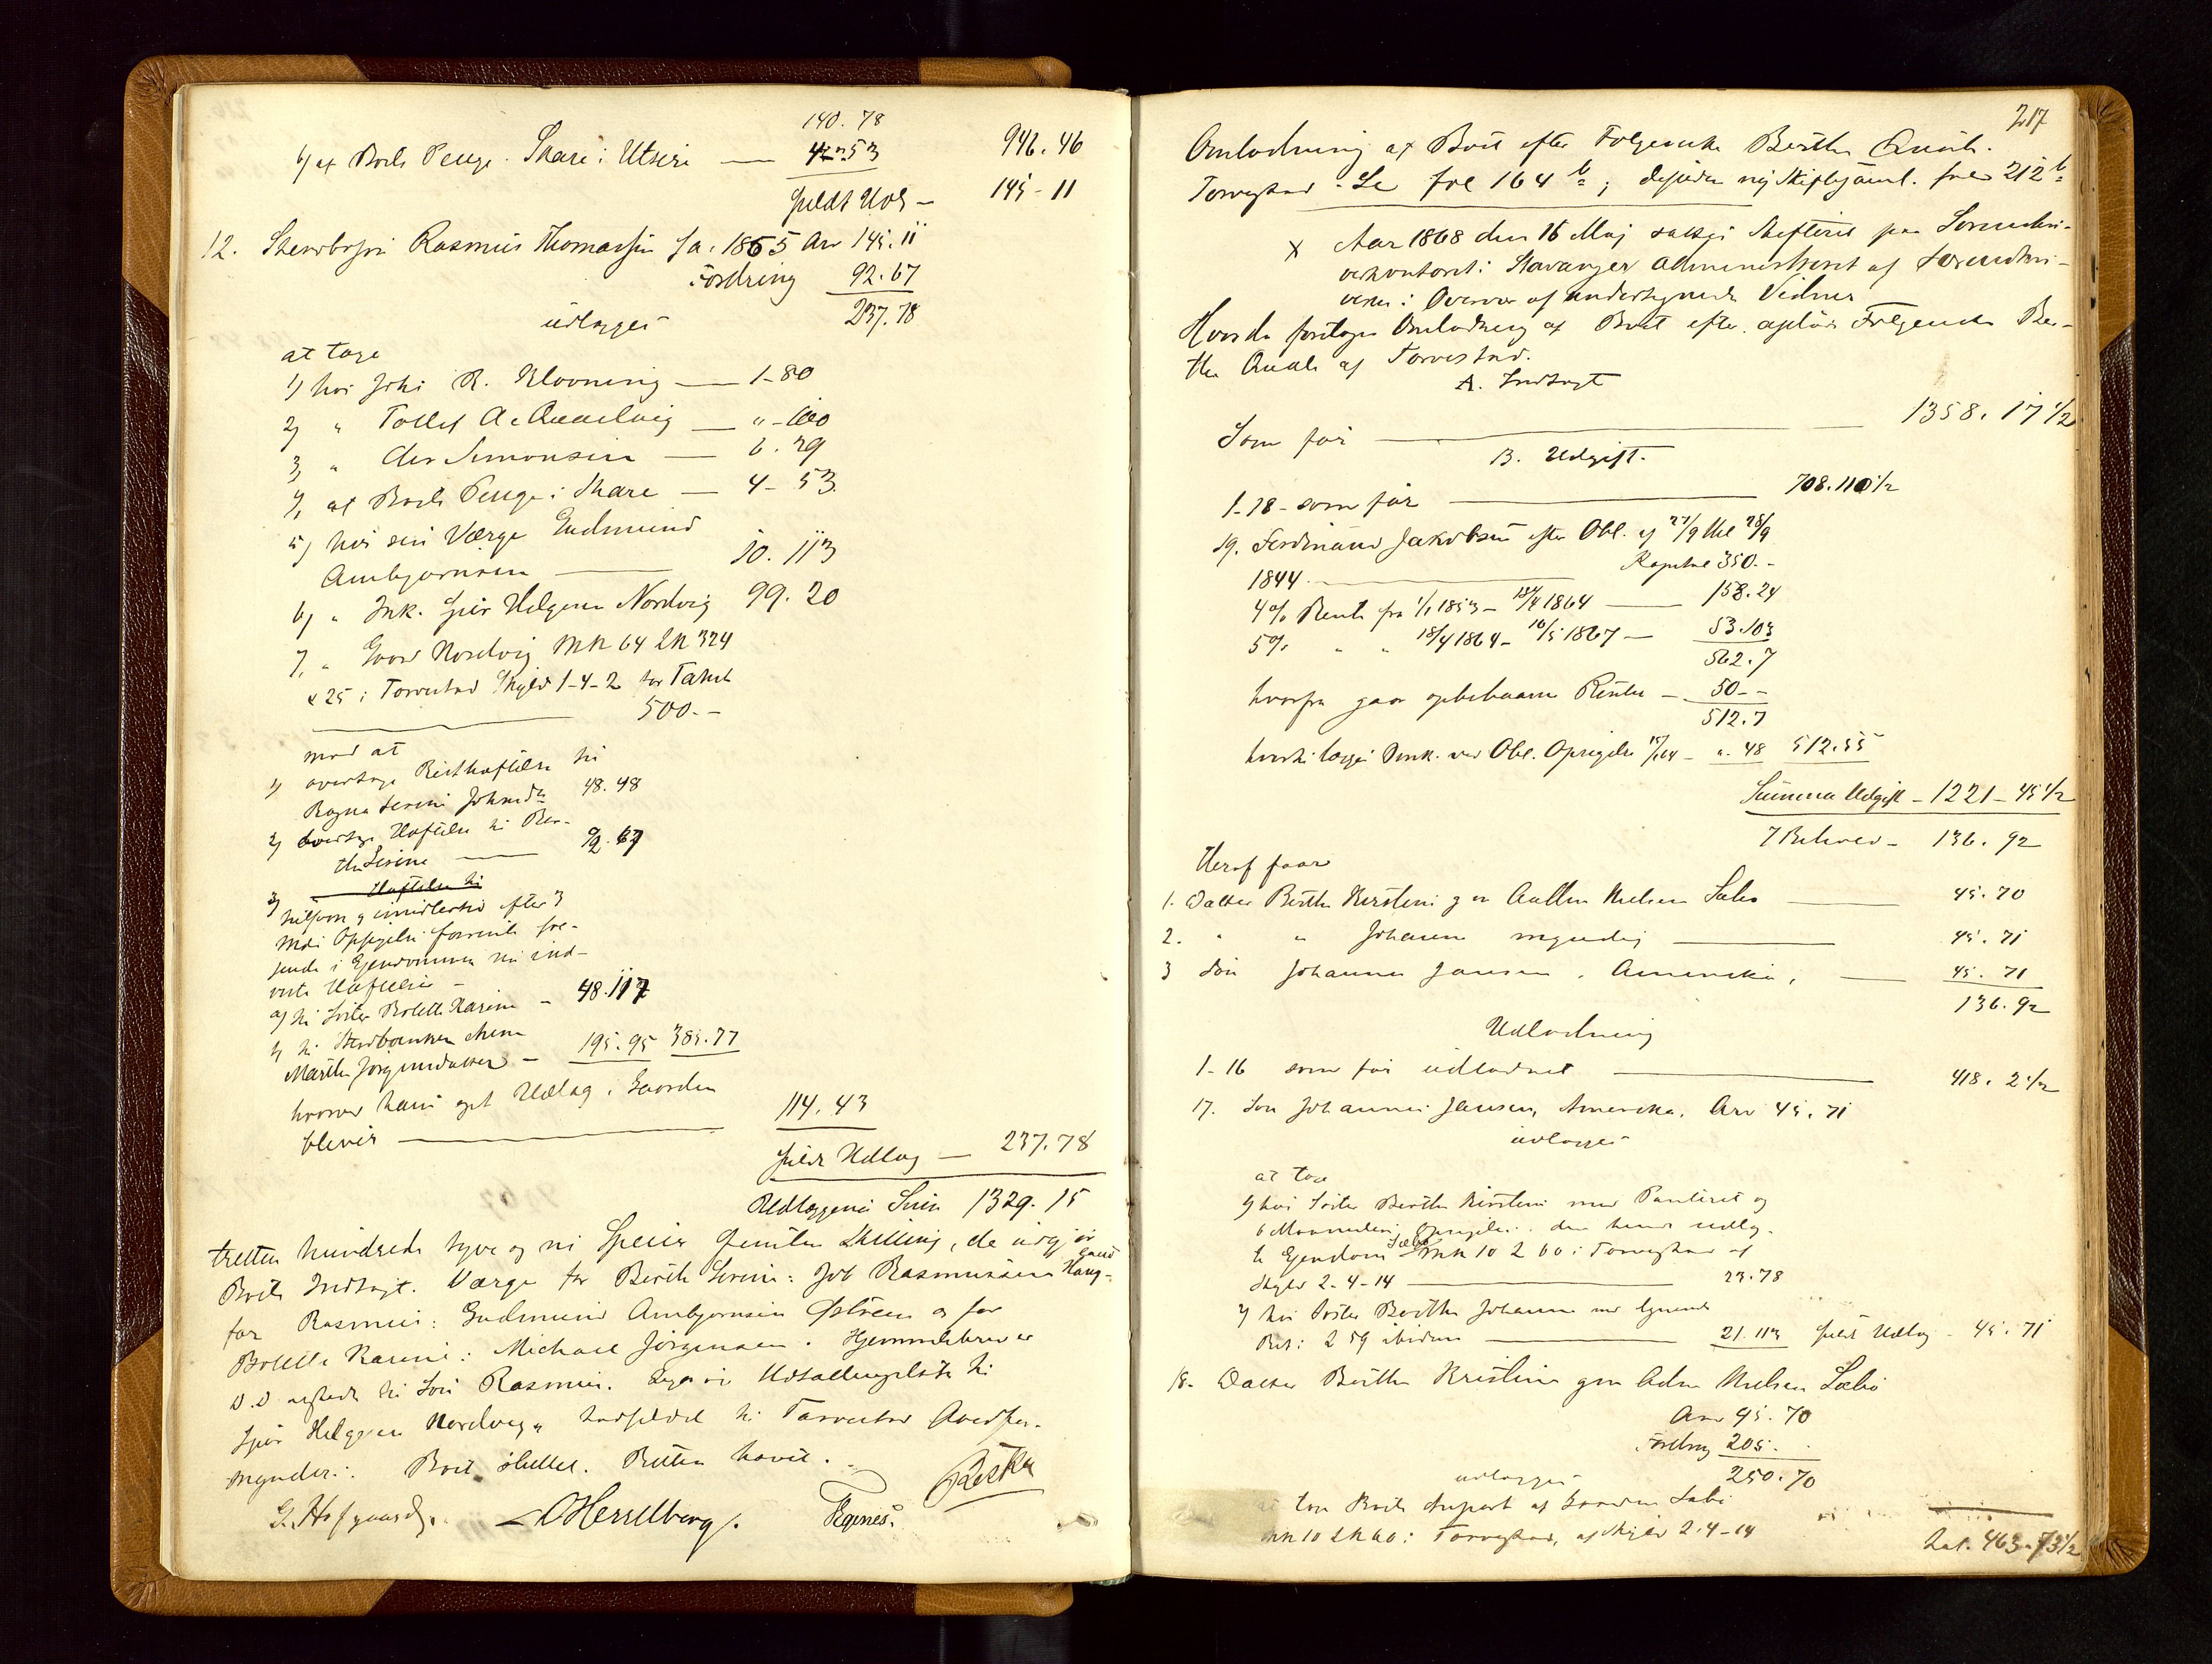 140. 78
6) af Boets Penge. Skare i Utsire — 4 " 53 946. 46
fuldt Udl — 145 - 11
12. Stervbosøn Rasmus Thomassen fa. 1865 Arv 145. 11
Fordring 92. 67
237. 78
udlægges
at tage
1) hos John R. Klovning — 1 - 80
2) " Tollef A. Qualevig — " - 100
3) " Simonsen — 6. 29
4) af Boets Penge i Skare — 4 - 53.
5) hos sin Værge Gudmund
Ambjørnsen — 10. 113
6) " Enk. Siri Helgesen Nordvig 99. 20
7) " Gaard Nordvig MN 64 LN 324
& 25 i Torvestad Skyld 1-4-2 for Taxt
500. -
mod at
1) overtage Resthæftelse til
Ragna Serine Johnsd. 48. 48
2) overtage Hæftelse til Ber-
the Serine — 92. 67
3) Hæftelse til
tilsvare og imidlertid efter 3
Mdrs Opsigelse forrente føl-
gende i Ejendommen nu ind-
vist Hæftelse —
a) til Søster Bolette Karine — 48. 117
b) til Stervboenken
Marthe Jørgensdatter — 195. 95 385. 77
hvorved hans eget Udlæg i Gaarden
bliver — 114. 43
fuldt Udlæg — 237. 78
Udlæggenes Sum 1329. 15
tretten hundrede tyve og ni Specier femten Skilling, de udgjør
Boets Indtægt. Værge for Berthe Serine: Job Rasmussen Haug-
for Rasmus: Gudmund Ambjørnsen og for
Bolette Karine: Michael Jørgensen. Hjemmelsbrev er
D.D. udstedt til Søn Rasmus.
Siri Helgesen Nordvig, til Torvestad Overfor-
mynderi. Boet sluttet. Retten hævet.
G. Hofgaard. Hesselberg. Fegines.
217
Omlodning af Boet efter Følgeenke Berthe Qvale.
Torvestad - Se fol 164 b; desuden ny Skiftesaml. fol 212 b
X Aar 1868 den 16 Maj sattes Skifteret paa Sorenskri-
verkontoret i Stavanger administreret af Sorenskri-
veren i Overvær af undertegnede Vidner
Hvorda foretoges Omlodning af Boet efter afdøde Følgeenke Ber-
the Qvale af Torvestad.
A. Indtægt
Som før — 1358. 17 1/2
B. Udgift.
1-18 - som før — 708. 110 1/2
19. Ferdinand Jakobsen efter Obl. af 27/9 thl 28/9
1844 — Kapital 350. -
4% Rente fra 1/1 1853 - 18/4 1864 — 158. 24
5% " " 18/4 1864 - 16/5 1867 — 53. 103
562. 7
hvorfra gaar opbebaarne Renter — 50 - -
512. 7
hvortil lægges Omk. ved Obl. Opsigelse — " 48 512. 55
Summa Udgift - 1221 - 45 1/2
I Behold - 136. 92
Heraf faar
1. Datter Berthe Kirstine g m Adtten Nielsen Sæbø — 45. 70
2. " " Johanne myndig — 45. 71
3 Søn Johannes Jansen, Amerika, — 45. 71
136. 92
Udlodning
1-16 som før udlodnet — 418. 2 1/2
17. Søn Johannes Jansen, Amerika. Arv 45. 71
udlægges
at tage
1) hos Søster Berthe Kirstine med Panteret og
6 Maaneders Opsigelse i den hende udlag-
te Ejendom Sæbø MN 10 L 60 i Torvestad af
Skyld 2-4-14 — 23. 78
2) hos Søster Berthe Johanne med lignende
Ret i L 59 ibidem — 21. 113 fuldt Udlæg - 45. 71
18. Datter Berthe Kristine gm Adne Nielsen Sæbø
Arv 45. 70
Fordring 205. "
250. 70
udlægges
at tage Boets Anpart af Gaarden Sæbø
MN 10 LN 60 i Torvestad, af Skyld 2-4-14
Lat. 463. 73 1/2